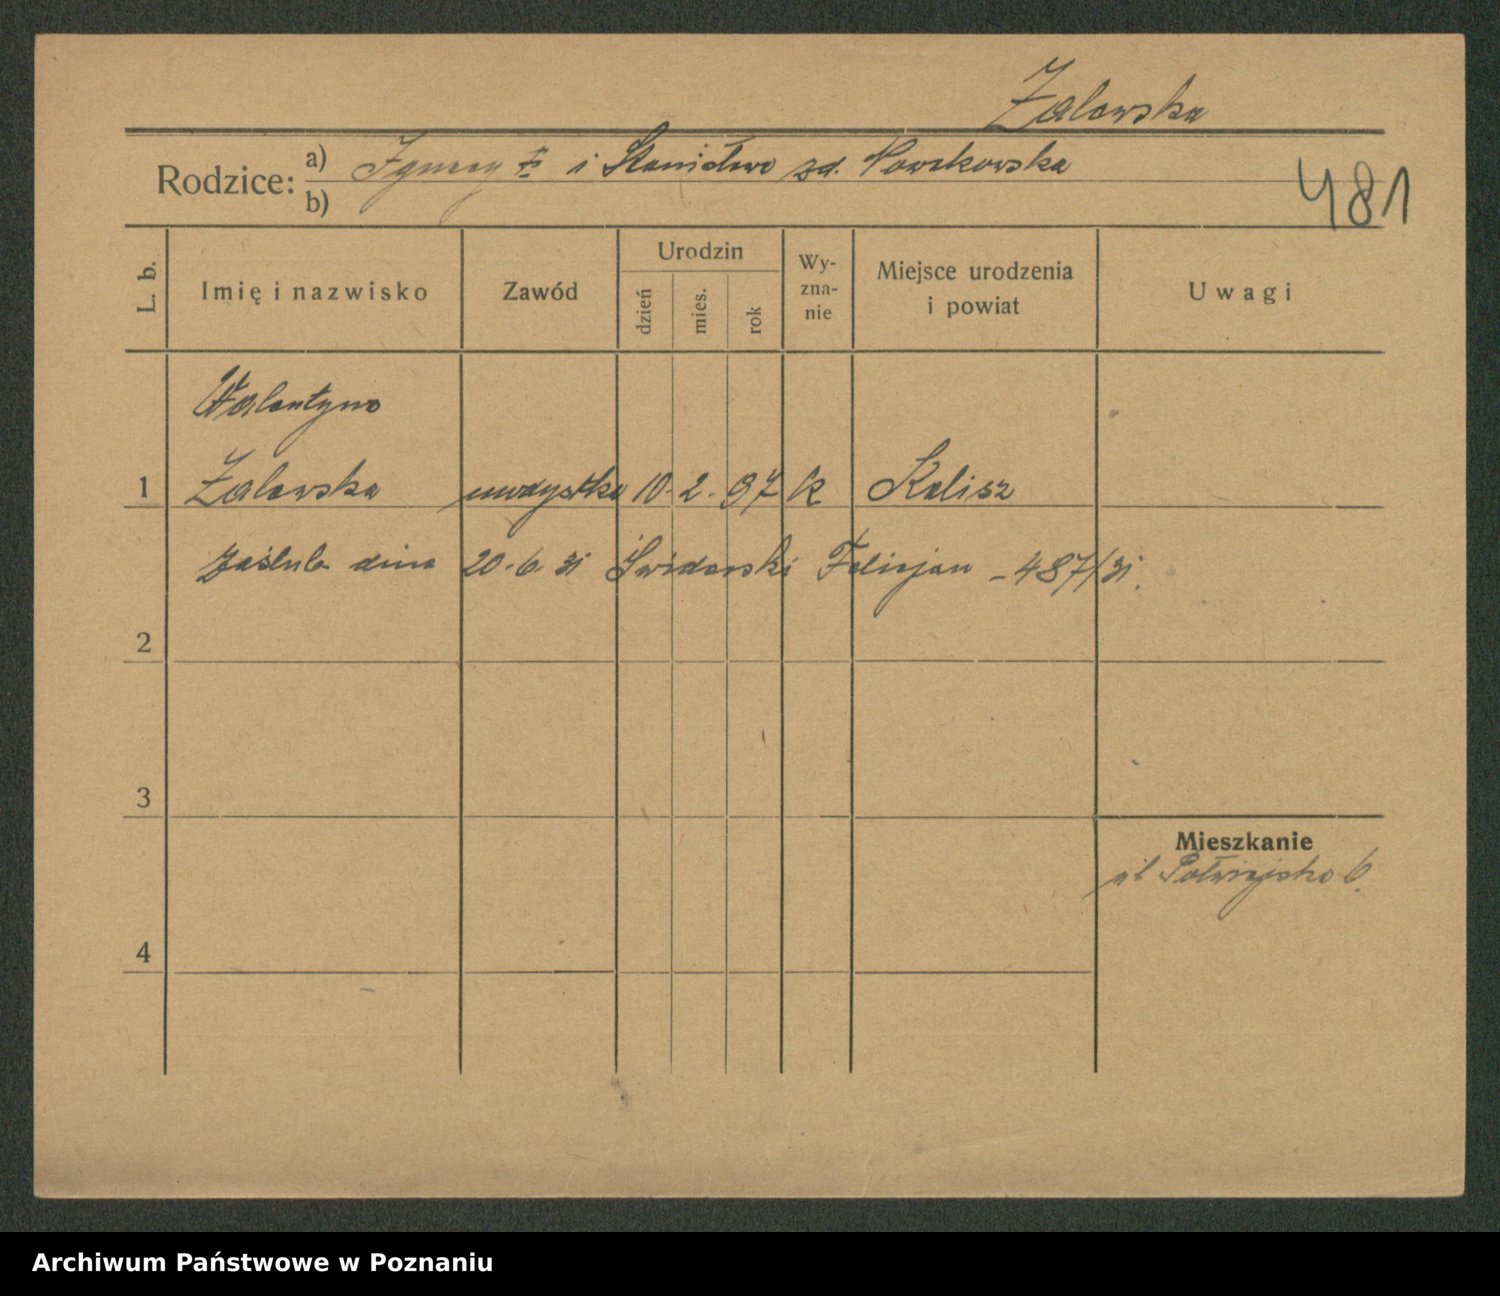 Zalewska
Rodzice: a) Ignacy i Stanisława zd. Nowakowska
b)
481
L. b.
Imię i nazwisko
Zawód
Urodzin
dzień
mies.
rok
Wy-
zna-
nie
Miejsce urodzenia
i powiat
Uwagi
Walentyna
1 Zalewska 10. 2. 97 k Kalisz
zaślub. dnia 20.6.31 Świderski Felicjan – 487/31.
2
3
Mieszkanie
ul Półwiejska 6.
4
Archiwum Państwowe w Poznaniu